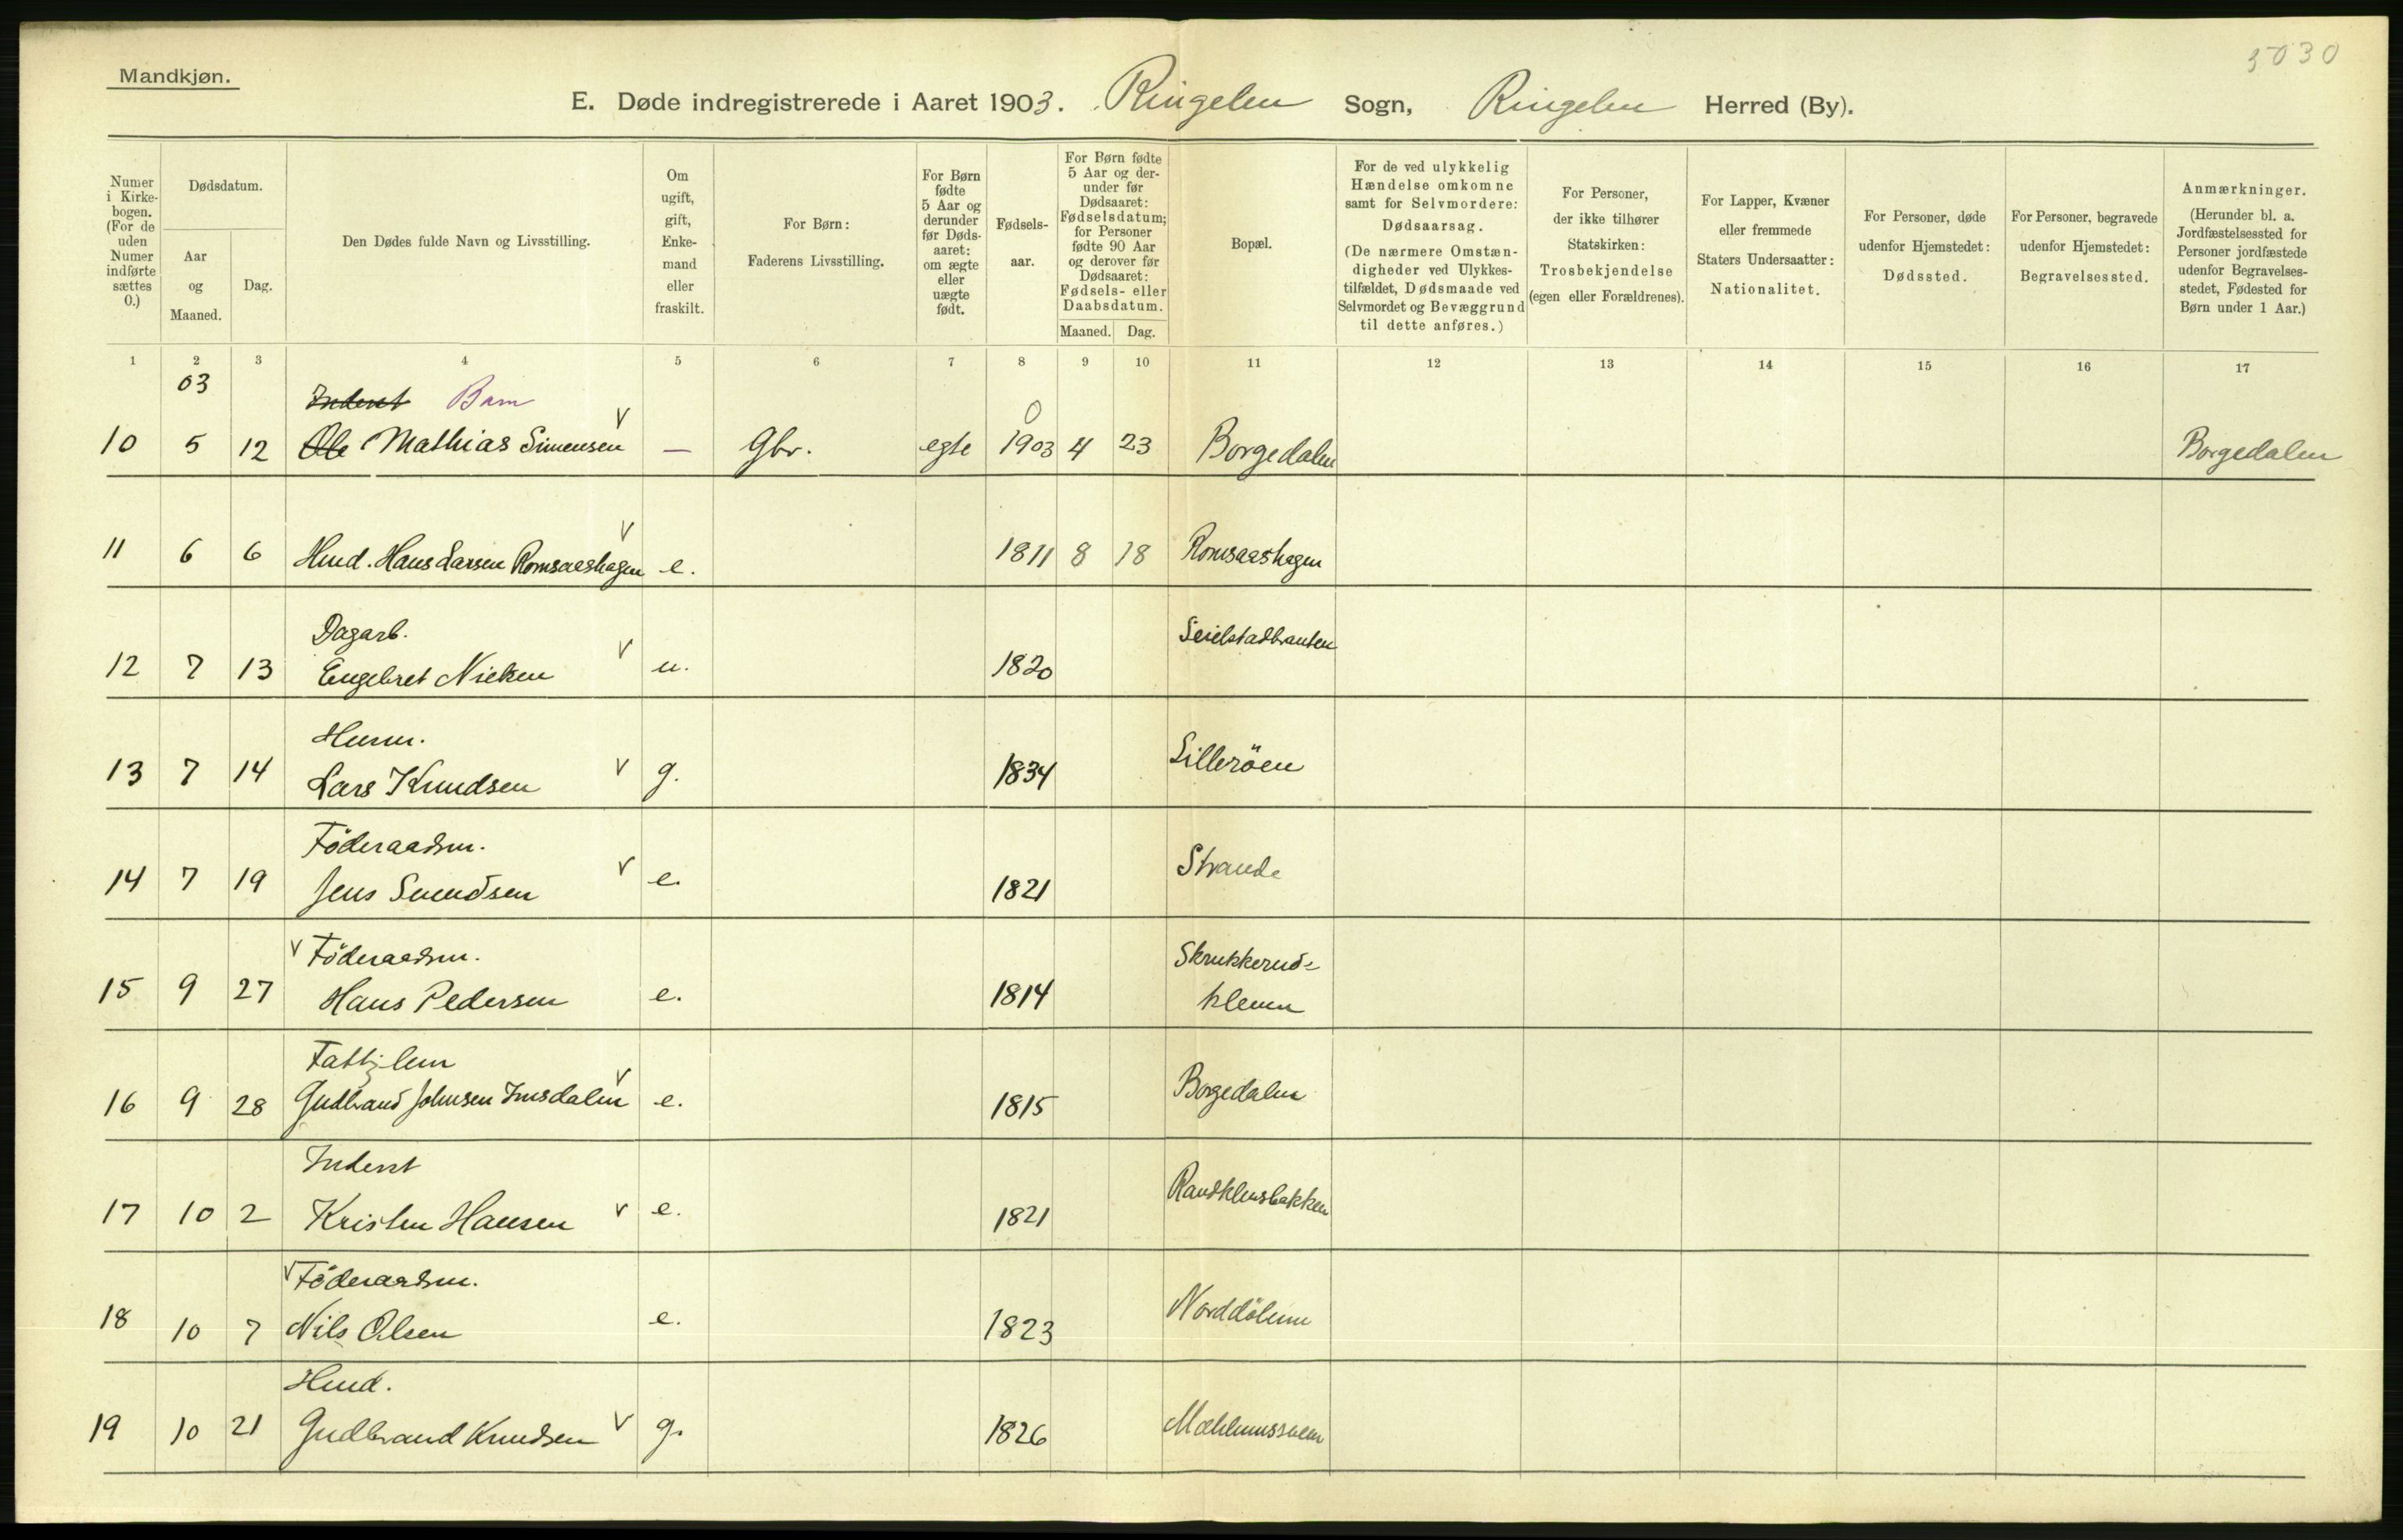 5030
Mandkjøn.
E. Døde indregistrerede i Aaret 1903. Ringelen Sogn, Ringelen Herred (By).
Numer i Kirkebogen. (For de uden Numer indførte sættes 0.)
Dødsdatum.
Aar og Maaned.
Dag.
Den Dødes fulde Navn og Livsstilling.
Om ugift, gift, Enkemand eller fraskilt.
For Børn: Faderens Livsstilling.
For Børn fødte 5 Aar og derunder før Dødsaaret: om ægte eller uægte født.
Fødselsaar.
For Børn fødte 5 Aar og derunder før Dødsaaret: Fødselsdatum; for Personer fødte 90 Aar og derover før Dødsaaret: Fødsels- eller Daabsdatum.
Maaned. Dag.
Bopæl.
For de ved ulykkelig Hændelse omkomne samt for Selvmordere: Dødsaarsag. (De nærmere Omstændigheder ved Ulykkestilfældet, Dødsmaade ved Selvmordet og Bevæggrund til dette anføres.)
For Personer, der ikke tilhører Statskirken: Trosbekjendelse (egen eller Forældrenes).
For Lapper, Kvæner eller fremmede Staters Undersaatter: Nationalitet.
For Personer, døde udenfor Hjemstedet: Dødssted.
For Personer, begravede udenfor Hjemstedet: Begravelsessted.
Anmærkninger. (Herunder bl. a. Jordfæstelsessted for Personer jordfæstede udenfor Begravelsesstedet, Fødested for Børn under 1 Aar.)
1 2 3 4 5 6 7 8 9 10 11 12 13 14 15 16 17
03
Inderst Barn
0
10 5 12 Ole Mathias Simensen V — Gbr. egte 1903 4 23 Borgedalen Borgedalen
11 6 6 Hmd. Hans Larsen Romsaashagen V e. 1811 8 18 Romsaashagen
Dagarb.
12 7 13 Engebret Nielsen V u. 1820 Seielstadbraaten
Husm.
13 7 14 Lars Knudsen V g. 1834 Lilleröen
Föderaadsm.
14 7 19 Jens Svendsen V e. 1821 Strande
V Föderaadsm.
15 9 27 Hans Pedersen e. 1814 Skrukkerud-
kleven
Fattiglem
16 9 28 Gudbrand Johnsen Imsdalen V e. 1815 Borgedalen
Inderst
17 10 2 Kristen Hansen V e. 1821 Randklevsbakken
V Föderaadsm.
18 10 7 Nils Olsen e. 1823 Norddölum
Hmd.
19 10 21 Gudbrand Knudsen V g. 1826